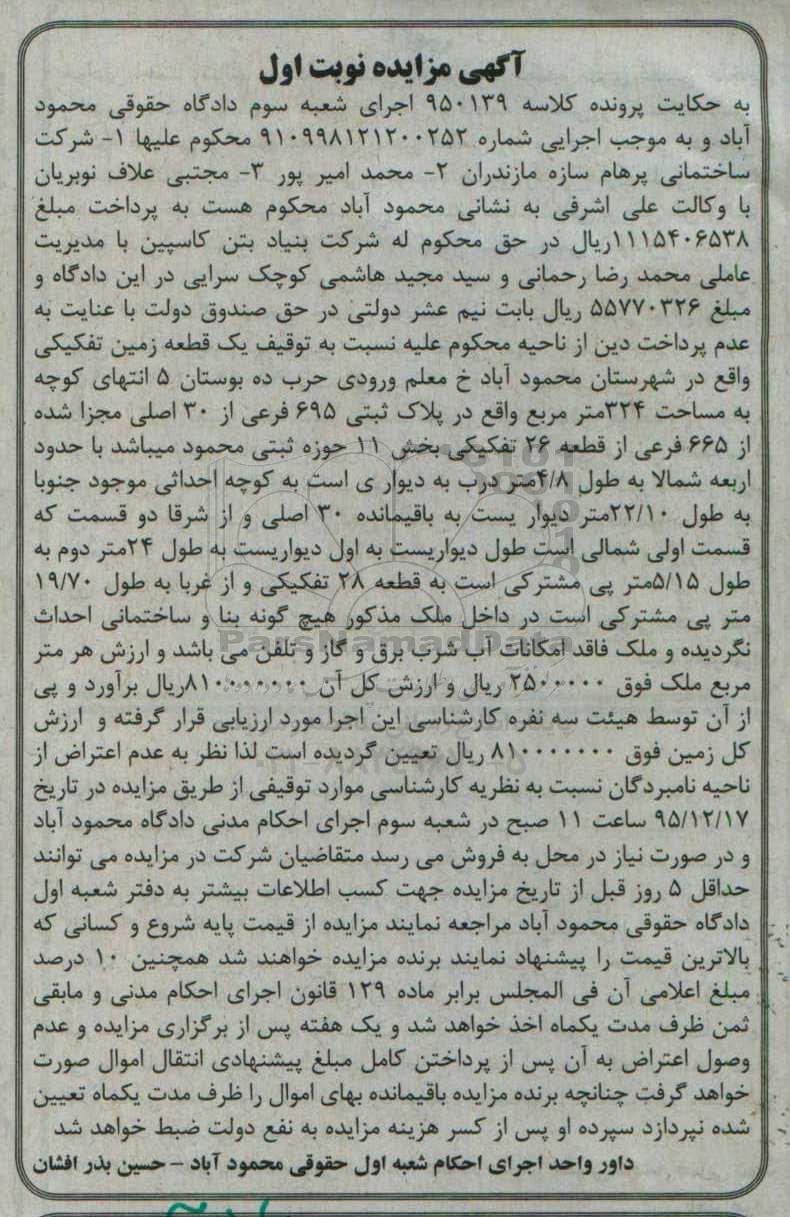 آگهی مزایده نوبت اول
به حکایت پرونده کلاسه ۹۵۰۱۳۹ اجرای شعبه سوم دادگاه حقوقی محمود
آباد و به موجب اجرایی شماره ۹۱۰۹۹۸۱۲۱۲۰۰۲۵۲ محکوم علیها ۱- شرکت
ساختمانی پرهام سازه مازندران ۲- محمد امیر پور ۳- مجتبی علاف نوبریان
با وکالت علی اشرفی به نشانی محمود آباد محکوم هست به پرداخت مبلغ
۱۱۱۵۴۰۶۵۳۸ریال در حق محکوم له شرکت بنیاد بتن کاسپین با مدیریت
عاملی محمد رضا رحمانی و سید مجید هاشمی کوچک سرایی در این دادگاه و
مبلغ ۵۵۷۷۰۳۲۶ ریال بابت نیم عشر دولتی در حق صندوق دولت با عنایت به
عدم پرداخت دین از ناحیه محکوم علیه نسبت به توقیف یک قطعه زمین تفکیکی
واقع در شهرستان محمود آباد خ معلم ورودی حرب ده بوستان ۵ انتهای کوچه
به مساحت ۳۲۴متر مربع واقع در پلاک ثبتی ۶۹۵ فرعی از ۳۰ اصلی مجزا شده
از ۶۶۵ فرعی از قطعه ۲۶ تفکیکی بخش ۱۱ حوزه ثبتی محمود میباشد با حدود
اربعه شمالا به طول ۴/۸متر درب به دیوار ی است به کوچه احداثی موجود جنوبا
به طول ۲۲/۱۰متر دیوار یست به باقیمانده ۳۰ اصلی و از شرقا دو قسمت که
قسمت اولی شمالی است طول دیواریست به اول دیواریست به طول ۲۴متر دوم به
طول ۵/۱۵متر پی مشترکی است به قطعه ۲۸ تفکیکی و از غربا به طول ۱۹/۷۰
متر پی مشترکی است در داخل ملک مذکور هیچ گونه بنا و ساختمانی احداث
نگردیده و ملک فاقد امکانات آب شرب برق و گاز و تلفن می باشد و ارزش هر متر
مربع ملک فوق ۲۵۰۰۰۰۰ ریال و ارزش کل آن ۸۱۰۰۰۰۰۰۰ریال برآورد و پی
از آن توسط هیئت سه نفره کارشناسی این اجرا مورد ارزیابی قرار گرفته و ارزش
کل زمین فوق ۸۱۰۰۰۰۰۰۰ ریال تعیین گردیده است لذا نظر به عدم اعتراض از
ناحیه نامبردگان نسبت به نظریه کارشناسی موارد توقیفی از طریق مزایده در تاریخ
۹۵/۱۲/۱۷ ساعت ۱۱ صبح در شعبه سوم اجرای احکام مدنی دادگاه محمود آباد
و در صورت نیاز در محل به فروش می رسد متقاضیان شرکت در مزایده می توانند
حداقل ۵ روز قبل از تاریخ مزایده جهت کسب اطلاعات بیشتر به دفتر شعبه اول
دادگاه حقوقی محمود آباد مراجعه نمایند مزایده از قیمت پایه شروع و کسانی که
بالاترین قیمت را پیشنهاد نمایند برنده مزایده خواهند شد همچنین ۱۰ درصد
مبلغ اعلامی آن فی المجلس برابر ماده ۱۲۹ قانون اجرای احکام مدنی و مابقی
ثمن ظرف مدت یکماه اخذ خواهد شد و یک هفته پس از برگزاری مزایده و عدم
وصول اعتراض به آن پس از پرداختن کامل مبلغ پیشنهادی انتقال اموال صورت
خواهد گرفت چنانچه برنده مزایده باقیمانده بهای اموال را ظرف مدت یکماه تعیین
شده نپردازد سپرده او پس از کسر هزینه مزایده به نفع دولت ضبط خواهد شد
داور واحد اجرای احکام شعبه اول حقوقی محمود آباد – حسین بذر افشان
ParsNamadData